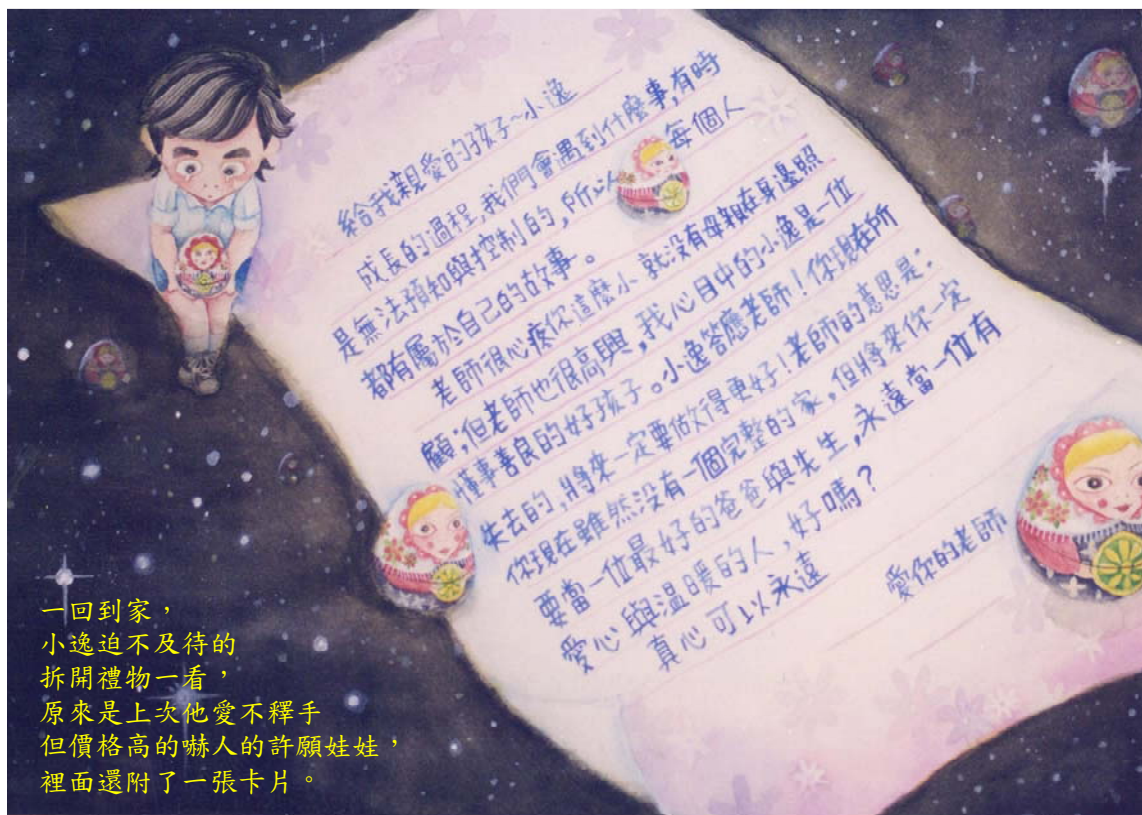 給我親愛的孩子～小逸
成長的過程，我們會遇到什麼事，有時
是無法預知與控制的，所以每個人
都有屬於自己的故事。
老師很心疼你這麼小就沒有母親在身邊照
顧；但老師也很高興，我心目中的小逸是一位
懂事善良的好孩子。小逸答應老師！你現在所
失去的，將來一定要做得更好！老師的意思是：
你現在雖然沒有一個完整的家，但將來你一定
要當一位最好的爸爸與先生，永遠當一位有
愛心與溫暖的人，好嗎？
真心可以永遠
愛你的老師
一回到家，
小逸迫不及待的
拆開禮物一看，
原來是上次他愛不釋手
但價格高的嚇人的許願娃娃，
裡面還附了一張卡片。